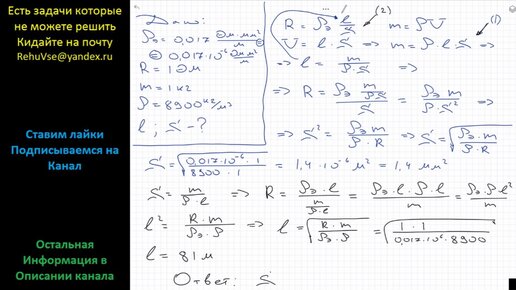 Есть задачи которые
не можете решить
Кидайте на почту
RehuVse@yandex.ru
Ставим лайки
Подписываемся на
Канал
Остальная
Информация в
Описании канала
Дано:
ρэ = 0,017 Ом·мм²/м =
= 0,017·10⁻⁶ Ом·м²/м
R = 1 Ом
m = 1 кг
ρ = 8900 кг/м³
l; S - ?
R = ρэ l/S (2) m = ρV
V = l·S ⇒ m = ρ·l·S ⇒ (1)
⇒ l = m/(ρ·S) ⇒
⇒ R = ρэ (m/(ρ·S))/S = (ρэ·m)/(ρ·S²) ⇒
⇒ S² = (ρэ·m)/(ρ·R) ⇒ S = √((ρэ·m)/(ρ·R))
S = √((0,017·10⁻⁶·1)/(8900·1)) = 1,4·10⁻⁶ м² = 1,4 мм²
S = m/(ρ·l) ⇒ R = (ρэ·l)/(m/(ρ·l)) = (ρэ·l·ρ·l)/m = (ρэ·ρ·l²)/m
l² = (R·m)/(ρэ·ρ) ⇒ l = √((R·m)/(ρэ·ρ)) = √((1·1)/(0,017·10⁻⁶·8900))
l = 81 м
Ответ: S